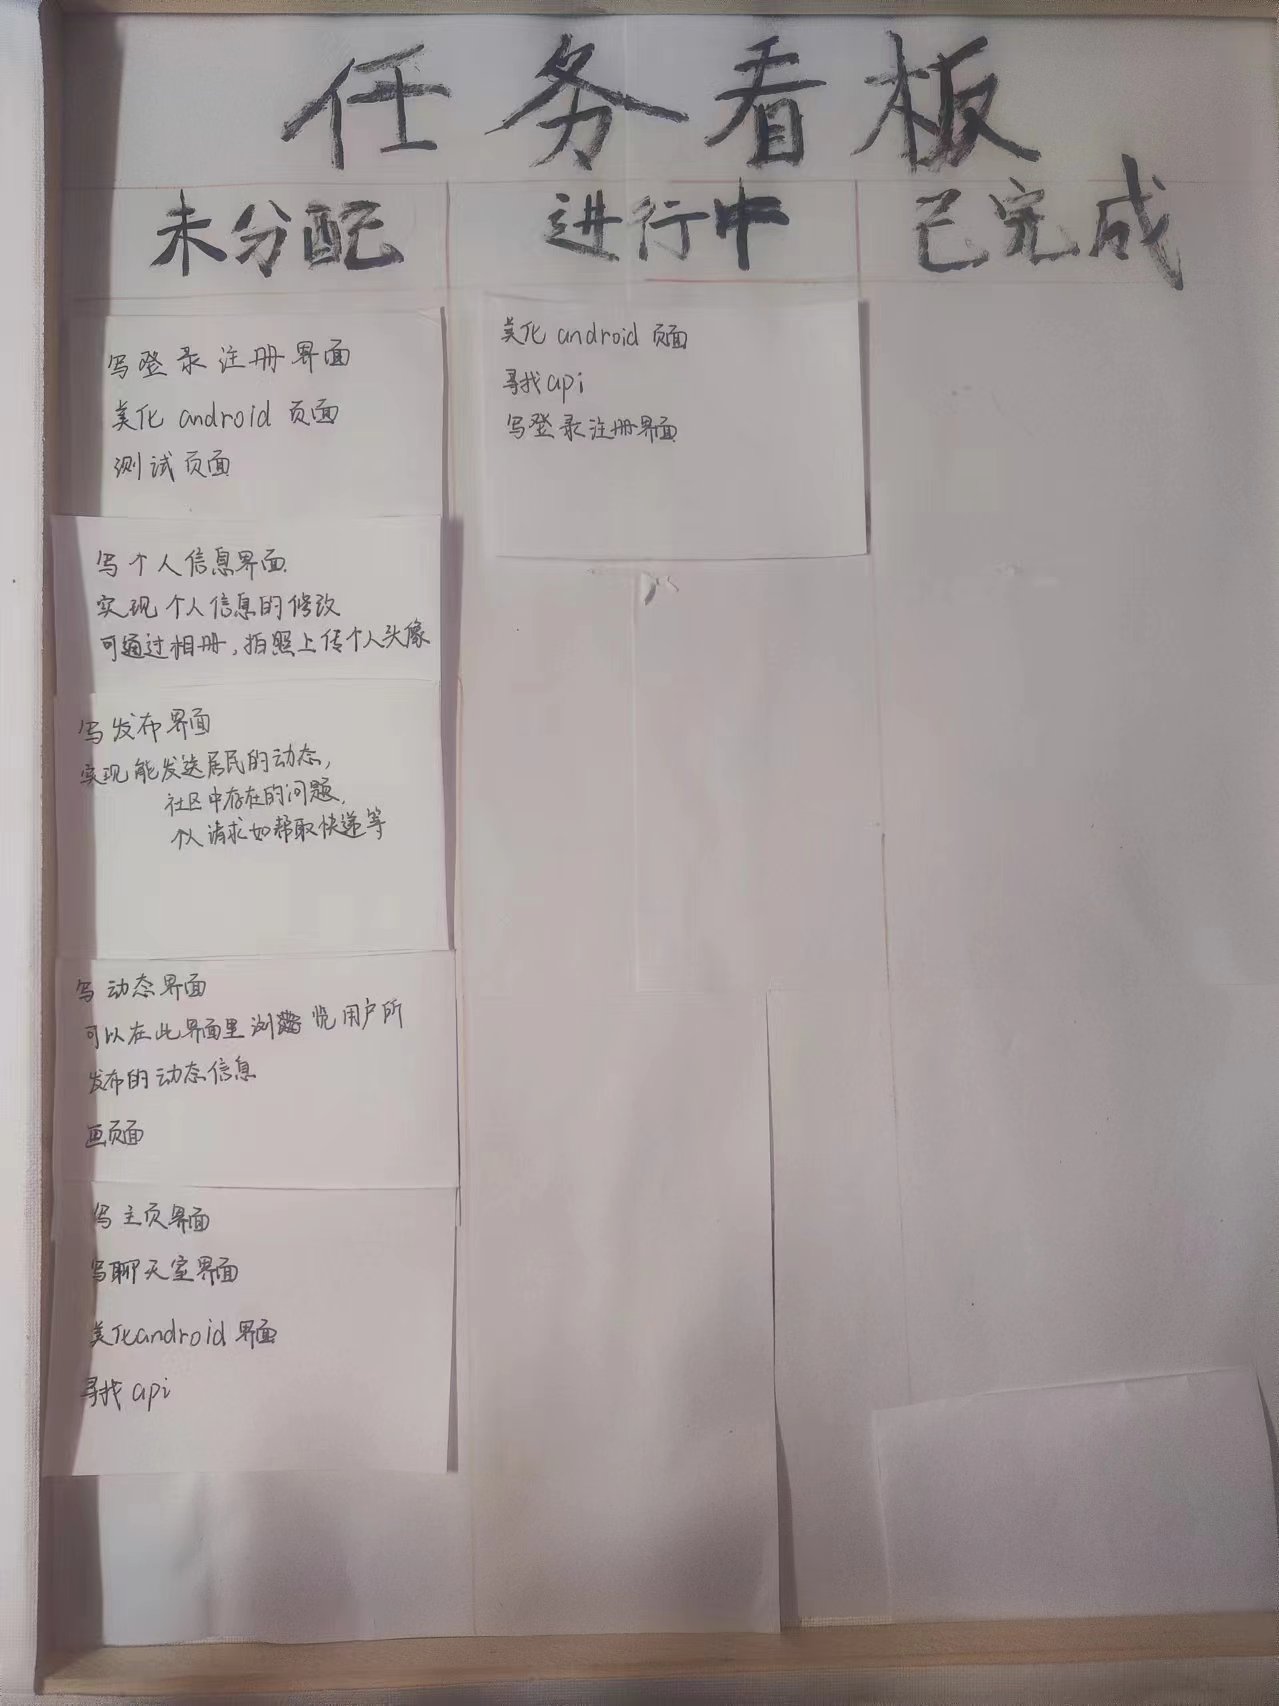 任务看板
未分配
进行中
已完成
写登录注册界面
美化 android 页面
测试页面
写个人信息界面.
实现个人信息的修改
可通过相册,拍照上传个人头像
写发布界面
实现能发送居民的动态,
社区中存在的问题,
个人请求如帮取快递等
写动态界面
可以在此界面里浏览用户所
发布的动态信息
画页面
写主页界面
写聊天室界面
美化android界面
寻找api
美化 android 页面
寻找api
写登录注册界面